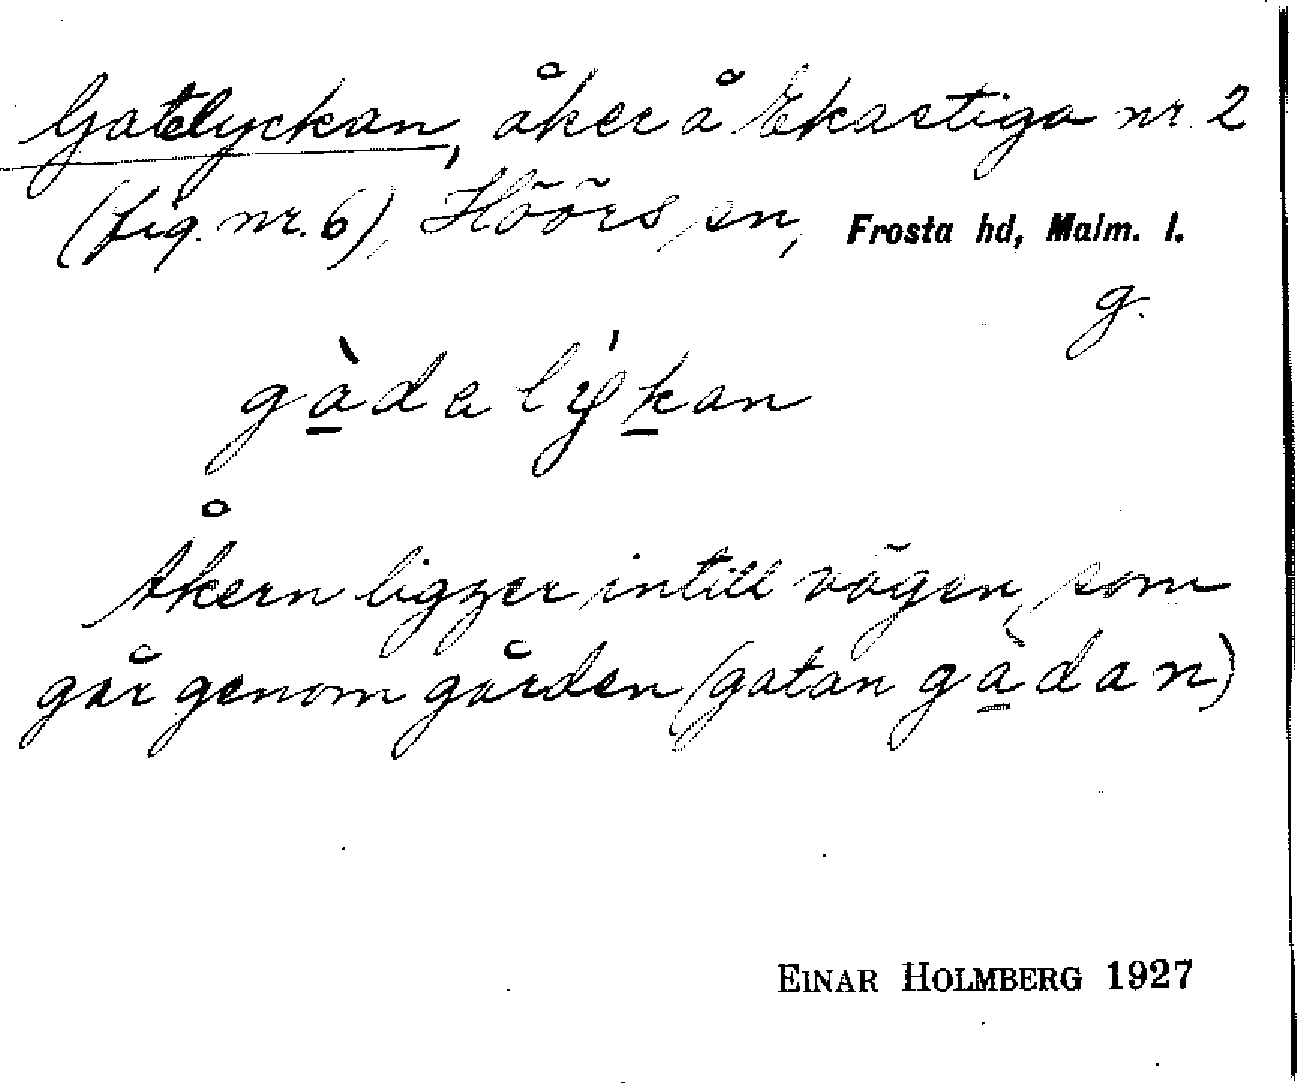 Gatelyckan, åker å Ekastiga nr. 2
(fig. nr. 6), Höörs sn, Frosta hd, Malm. l.
g.
gàdalýkan
Åkern ligger intill vägen, som
går genom gården (gatan gàdan)
EINAR HOLMBERG 1927